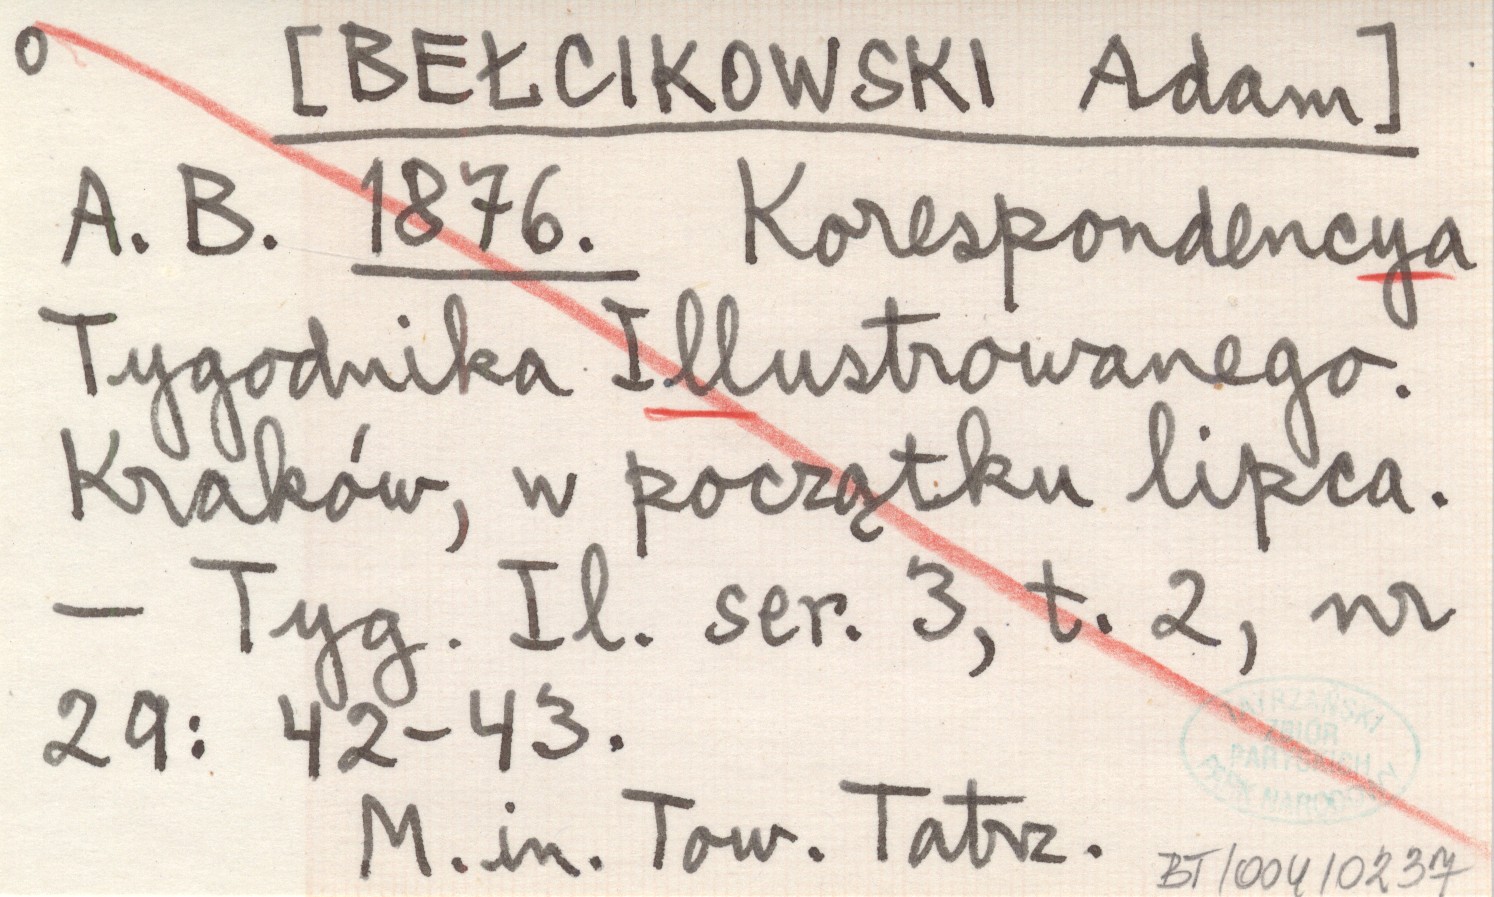 o [BEŁCIKOWSKI Adam]
A. B. 1876. Korespondencya
Tygodnika Illustrowanego.
Kraków, w początku lipca.
— Tyg. Il. ser. 3, t. 2, nr
29: 42-43.
M. in. Tow. Tatrz.
TATRZAŃSKI
ZBIÓR
BT/004/0237